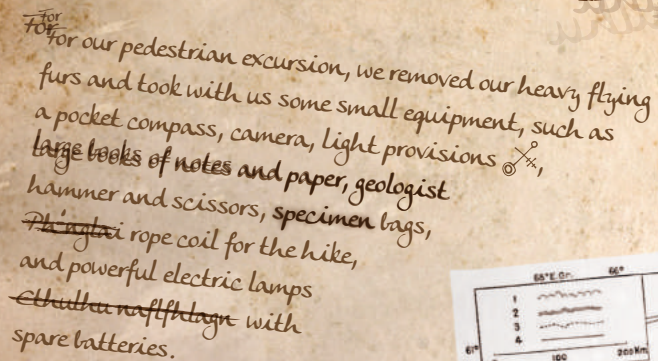 For
For
For our pedestrian excursion, we removed our heavy flying
furs and took with us some small equipment, such as
a pocket compass, camera, light provisions ,
large books of notes and paper, geologist
hammer and scissors, specimen bags,
Ph'nglai rope coil for the hike,
and powerful electric lamps
Cthulhu naflfhtagn with
spare batteries.
65°E.Gr. 66°
1
2
3
4
61°
100 200Km